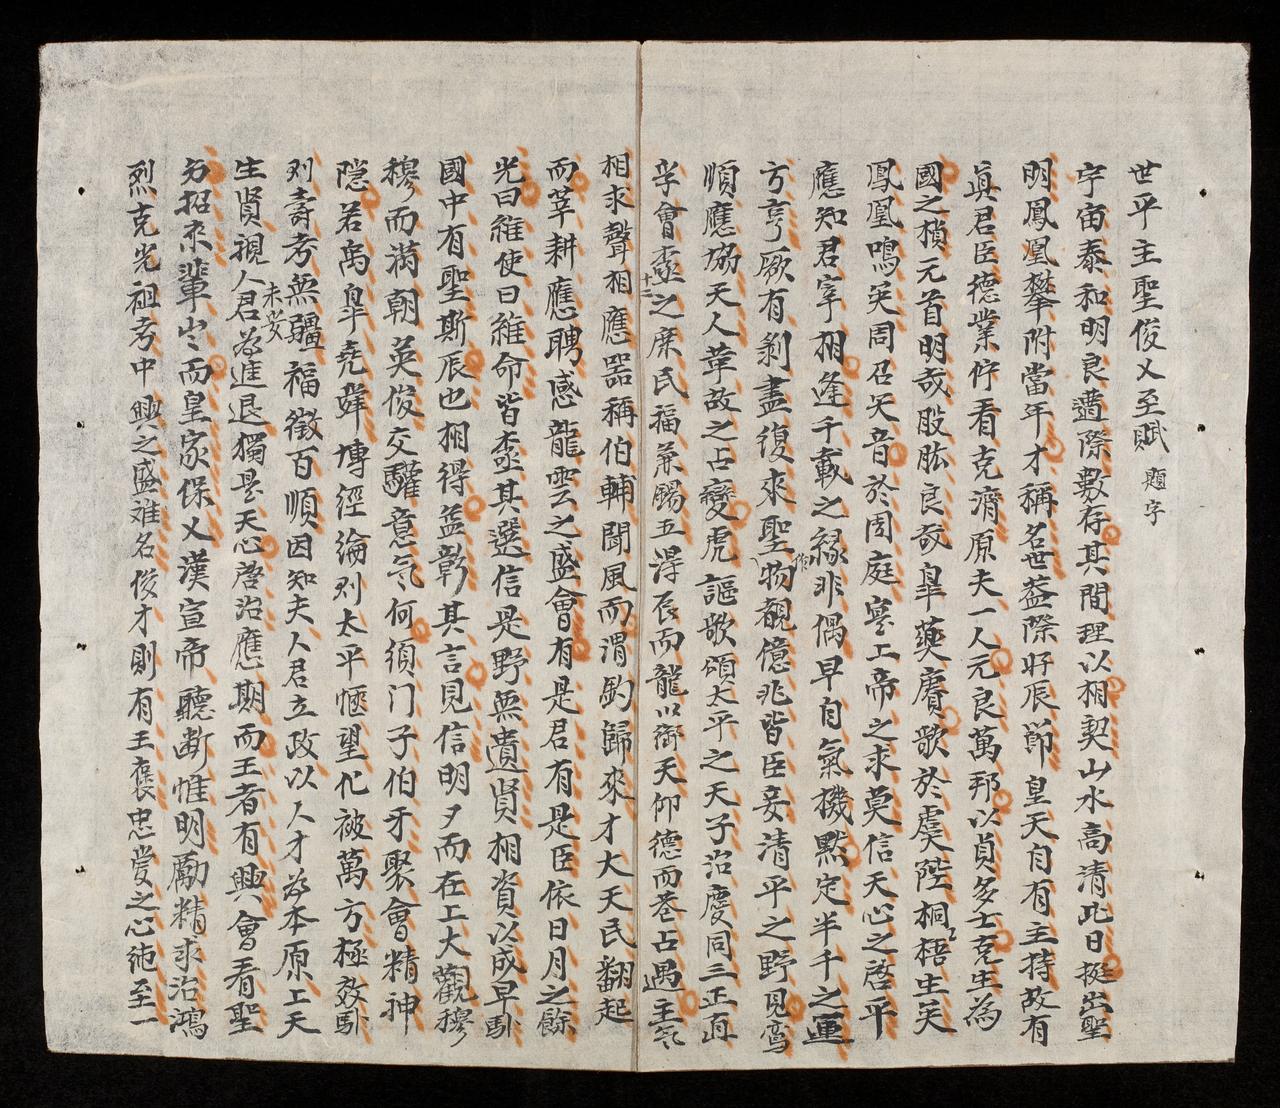 世平主聖俊乂至賦 題字
宇宙泰和明良遭際數存其間理以相契山水高清此日挺出聖
明鳳凰攀附當年才稱名世蓋際好辰節皇天自有主持故有
眞君臣德業佇看克濟原夫一人元良萬邦以貞多士克生為
國之楨元首明哉股肱良哉皐䕫賡歌於虞陛桐梧生矣
鳳凰鳴矣周召矢音於周庭寔上帝之求莫信天心之啓平
應知君宰相逢千載之緣非偶早自氣機默定半千之運
方亨厥有剝盡復來聖作物覩億兆皆臣妾清平之野見鸞
順應協天人革故之占變虎謳歌頌太平之天子治慶同三正直
孚會盍之庶民福兼賜五淂辰而龍以御天仰德而巷占遇主氣
相求聲相應噐稱伯輔聞風而渭釣歸來才大天民翻起
而莘耕應聘感龍雲之盛會有是君有是臣依日月之餘
光曰維使曰維命皆極其選信是野無遺賢相資以成早卧
國中有聖斯辰也相得益彰其言見信明夕而在工大觀穆
穆而滿朝英俊交驩意氣何須门子伯牙聚會精神
隱若禹皐堯舜博經綸則太平愜望化被萬方極效卧
则壽考無疆福徵百順因知夫人君立政以人才為本原上天
生賢視人君為進退獨是天心啓治應期而王者有興會看聖
方招來輩出而皇家保乂漢宣帝聽斷惟明勵精求治鴻
烈克光祖考中興之盛难名俊才則有王褒忠愛之心純至一
未妥